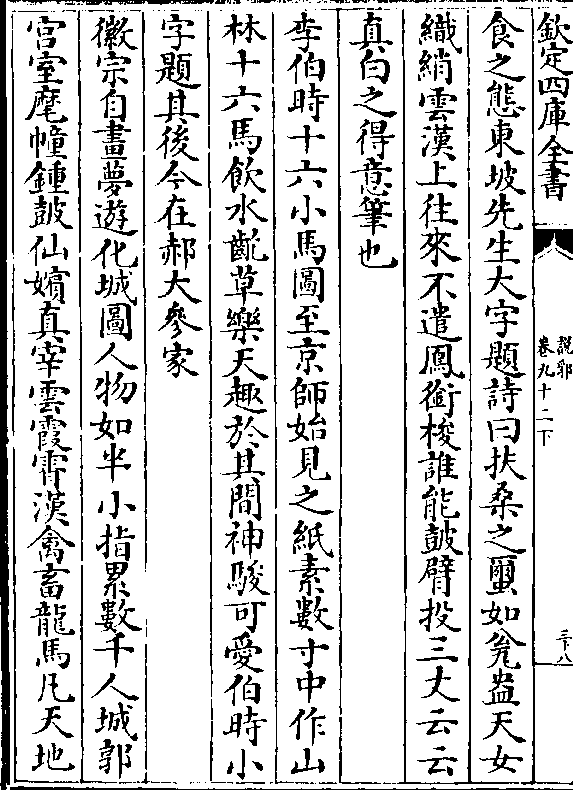 欽定四庫全書
說郛
卷九十二下
三十八
食之態東坡先生大字題詩曰扶桑之𧕏如瓮盎天女
織綃雲漢上往來不遣鳳銜梭誰能鼓臂投三丈云云
真白之得意筆也
李伯時十六小馬圖至京師始見之紙素數寸中作山
林十六馬飲水齕草樂天趣於其間神駿可愛伯時小
字題其後今在郝大參家
徽宗自畫夢遊化城圖人物如半小指累數千人城郭
宫室麾幢鍾鼓仙嬪真宰雲霞霄漢禽畜龍馬凡天地